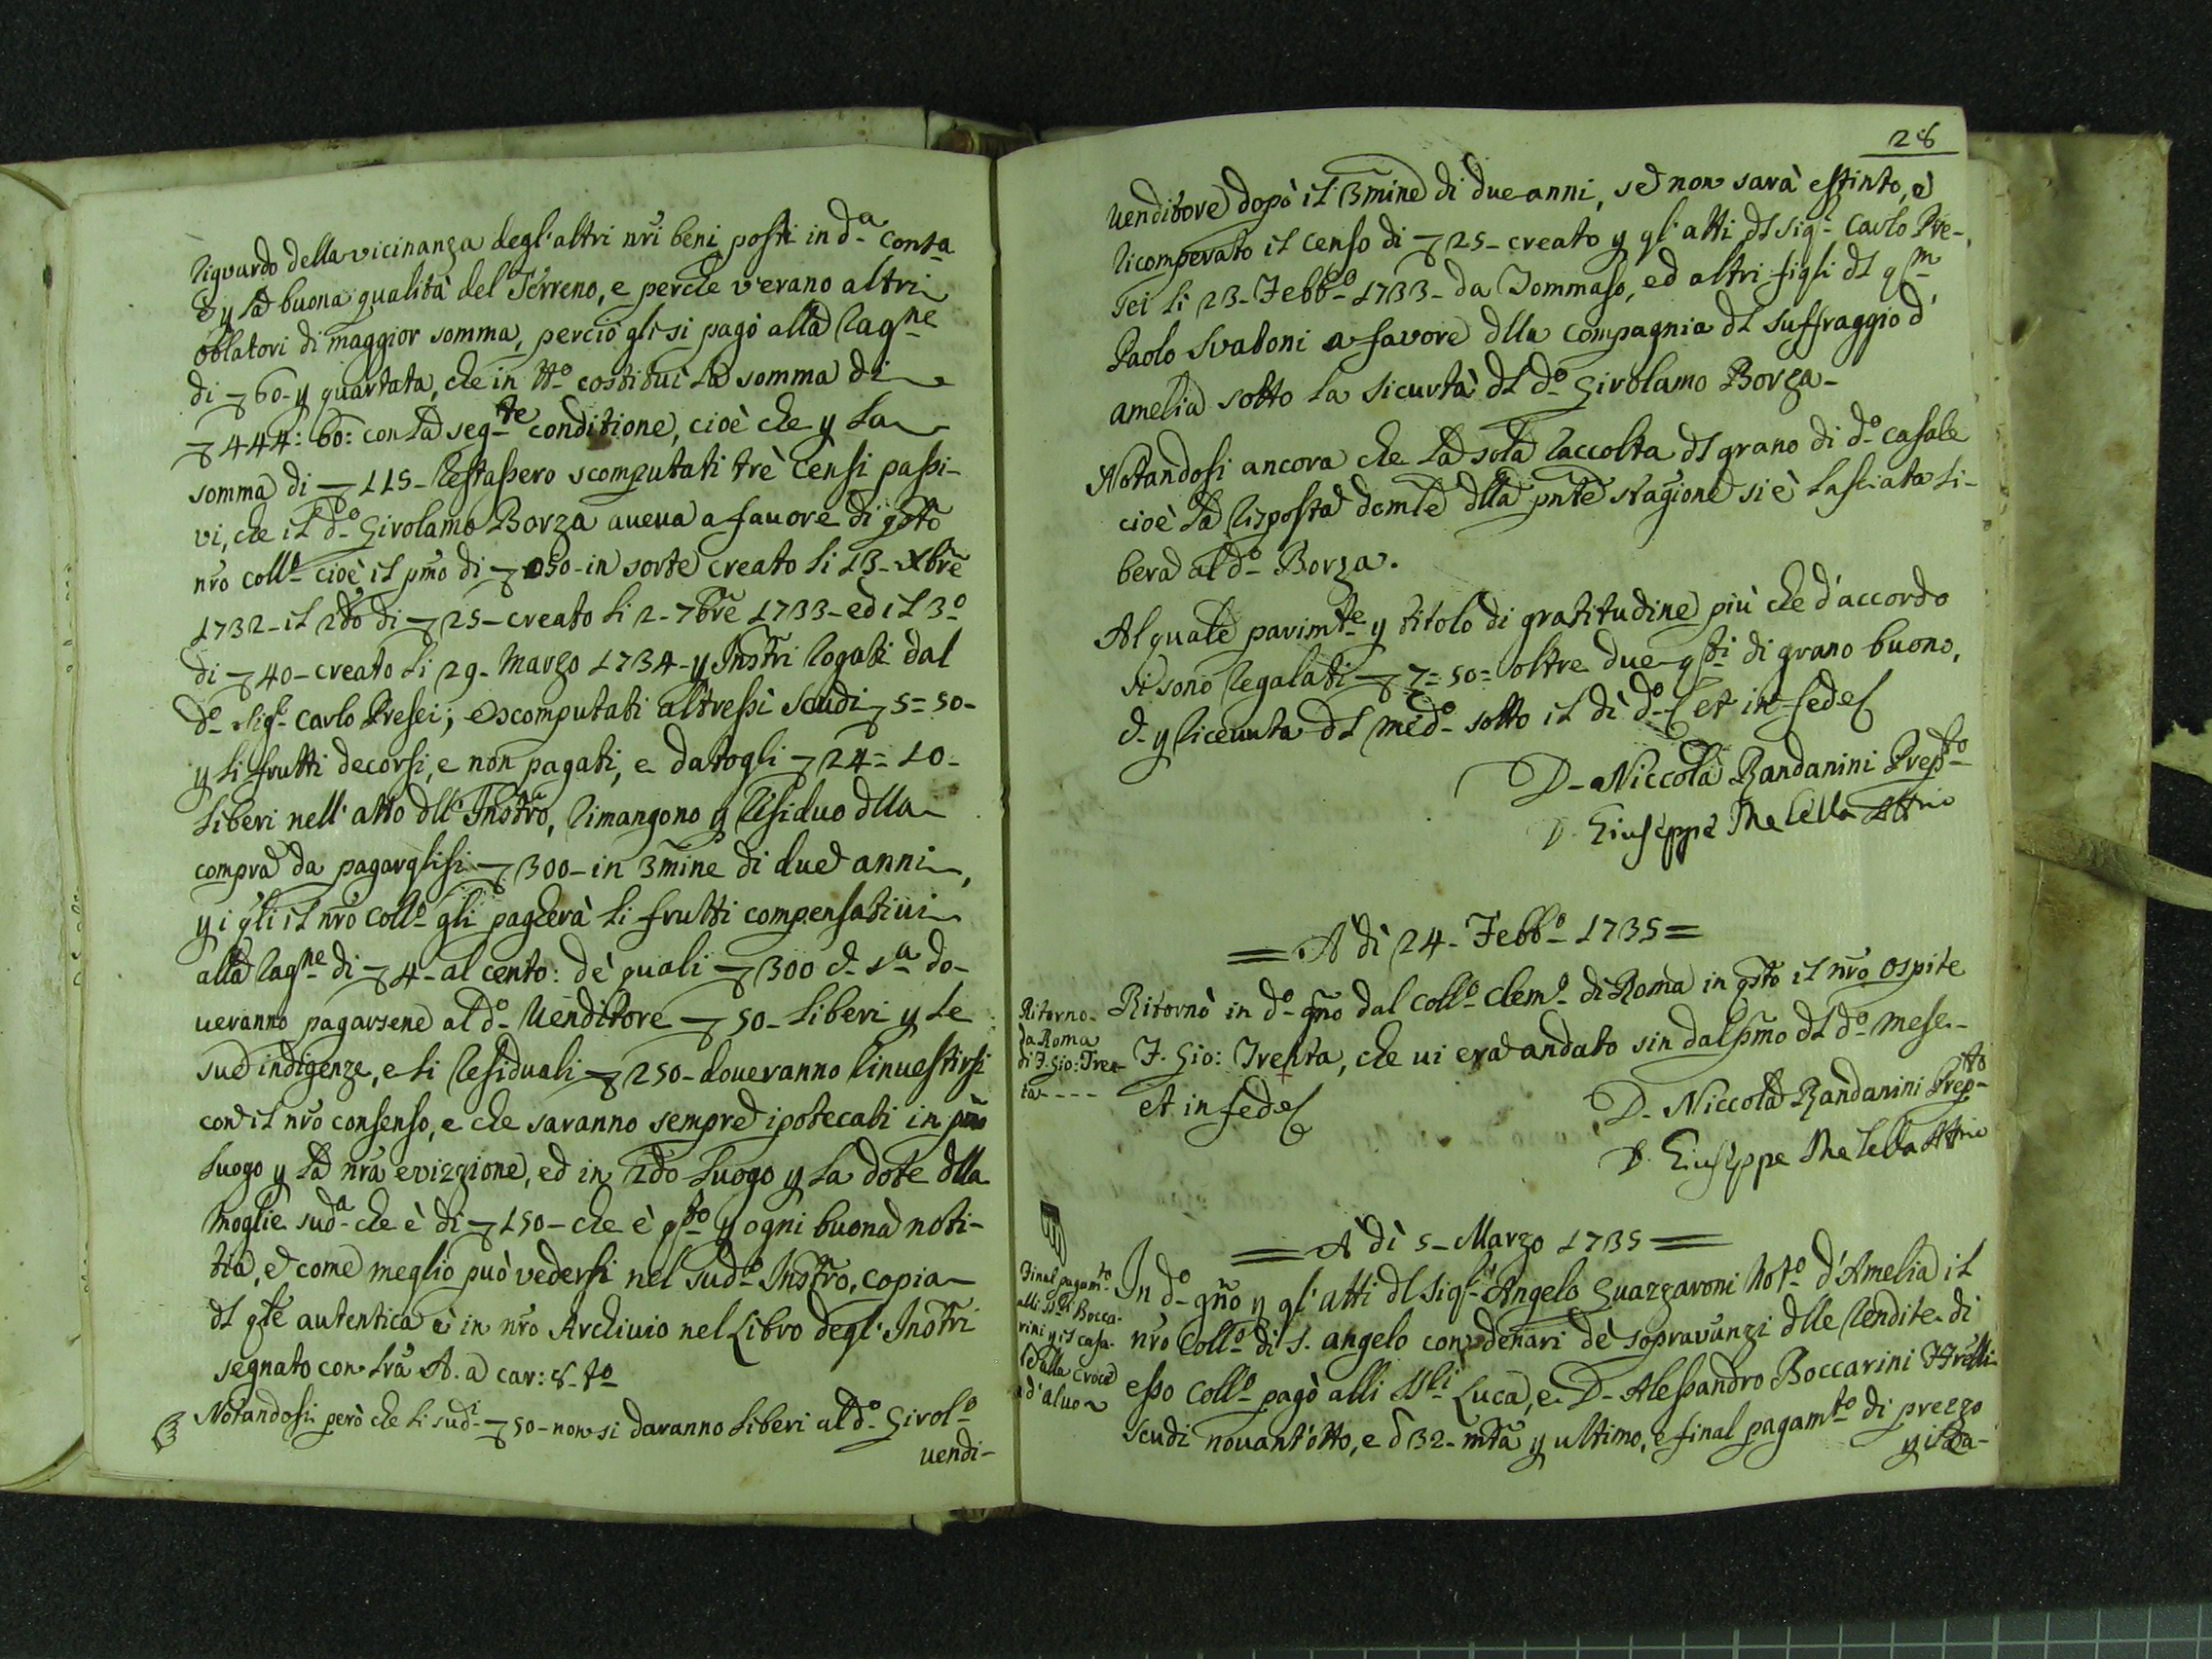 riguardo della vicinanza degl'altri nr̃i beni posti in d.ª conta
è y la buona qualità del Terreno, e perche v'erano altri
oblatori di maggior somma, perciò gli si pagò alla rag.ne
di 60 - y quartata, che in tt.º costituì la somma di
444: 60: con la seg.te conditione, cioè che y la
somma di 115 - restassero scomputati trè censi passi-
vi, che il d.º Girolamo Borza aueua a fauore di q̃sto
nr̃o Coll.º cioè il pm̃o di 50 - in sorte creato li 13 - Xbr̃e
1732 - il 2do di 25 - creato li 2 - 7br̃e 1733 - ed il 3.º
di 40 - creato li 29 - Marzo 1734 - y Instr̃i rogati dal
d.º Sig.r Carlo Presei; e scomputati altressì scudi 5=50-
y li frutti decorsi, e non pagati, e datogli 24=10-
liberi nell'atto dll'Instr̃o, rimangono y residuo dlla
compra da pagarglisi 300 - in 3mine di due anni,
y i q̃li il nr̃o Coll.º gli pagherà li frutti compensatiui
alla rag.ne di 4 - al cento: de quali 300 d. s.ª do-
ueranno pagarsene al d.º Venditore 50 - liberi y le
sue indigenze, e li residuali 250 - doueranno rinuestirsi
con il nr̃o consenso, e che saranno sempre ipotecati in pm̃o
luogo y la nr̃a evizzione, ed in 2do luogo y la dote dlla
moglie sud.ª che è di 150 - che è q.to y ogni buona noti-
tia, e come meglio può vedersi nel sud.º Instr̃o, copia
dl q̃le autentica è in nr̃o Archiuio nel Libro degl'Instr̃i
segnato con lr̃a A. a car: 8 - t.º
Notandosi però che li sud.i 50 - non si daranno liberi al d.º Girol.º
uendi-
28
uenditore dopò il 3mine di due anni, se non sarà estinto, e
ricomperato il censo di 25 - creato y gl'atti dl Sig.r Carlo Pre-
sei li 23 - Febb.º 1733 - da Tommaso, ed altri figli dl q.m
Paolo Svatoni a favore dlla Compagnia dl Suffraggio d'
Amelia sotto la sicurtà dl d.º Girolamo Borza -
Notandosi ancora che la sola raccolta dl grano di d.º casale
cioè la risposta domle dlla pnte stagione si è lasciata li-
bera al d.º Borza.
Al quale parimte y titolo di gratitudine più che d'accordo
si sono regalati 7=50= oltre due q.ti di grano buono,
e - y riceuuta dl med.º sotto il dì d.º et in fede
D. Niccola Bandanini Prep.to
D. Giuseppe Melella Att.rio
= A dì 24 - Febb.º 1735 =
Ritorno
da Roma
di F. Gio: Tren-
ta - - - -
Ritornò in d.º gño dal Coll.º Clem.º di Roma in q̃sto il nr̃o ospite
F. Gio: Trenta, che ui era andato sin dal pm̃o dl d.º mese -
et in fede
D. Niccola Bandanini Prep.to
D. Giuseppe Melella Att.rio
= A dì 5 - Marzo 1735 =
Final pagam.to
alli SS.ri Bocca-
rini y il casa-
le dalla Croce
d'aluo
In d.º gño y gl'atti dl Sig.r Angelo Guazzaroni Not.º d'Amelia il
nr̃o Coll.º di S. Angelo con denari de sopravanzi dlle rendite di
esso Coll.º pagò alli SS.ri Luca, e D. Alessandro Boccarini Fr̃elli
scudi nouant'otto, e b 32 - mta y ultimo, e final pagam.to di prezzo
y il Ca-